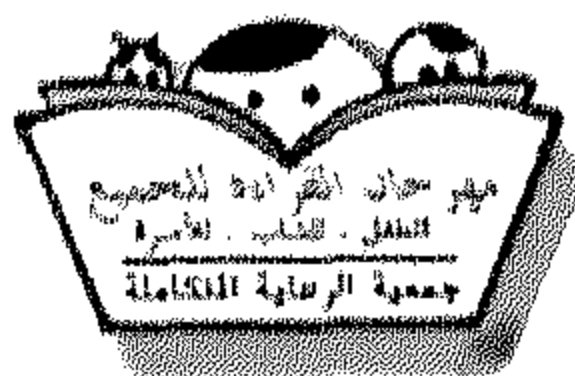 مهرجان القراءة للجميع
الطفل . الشاب . الأسرة
جمعية الرعاية المتكاملة